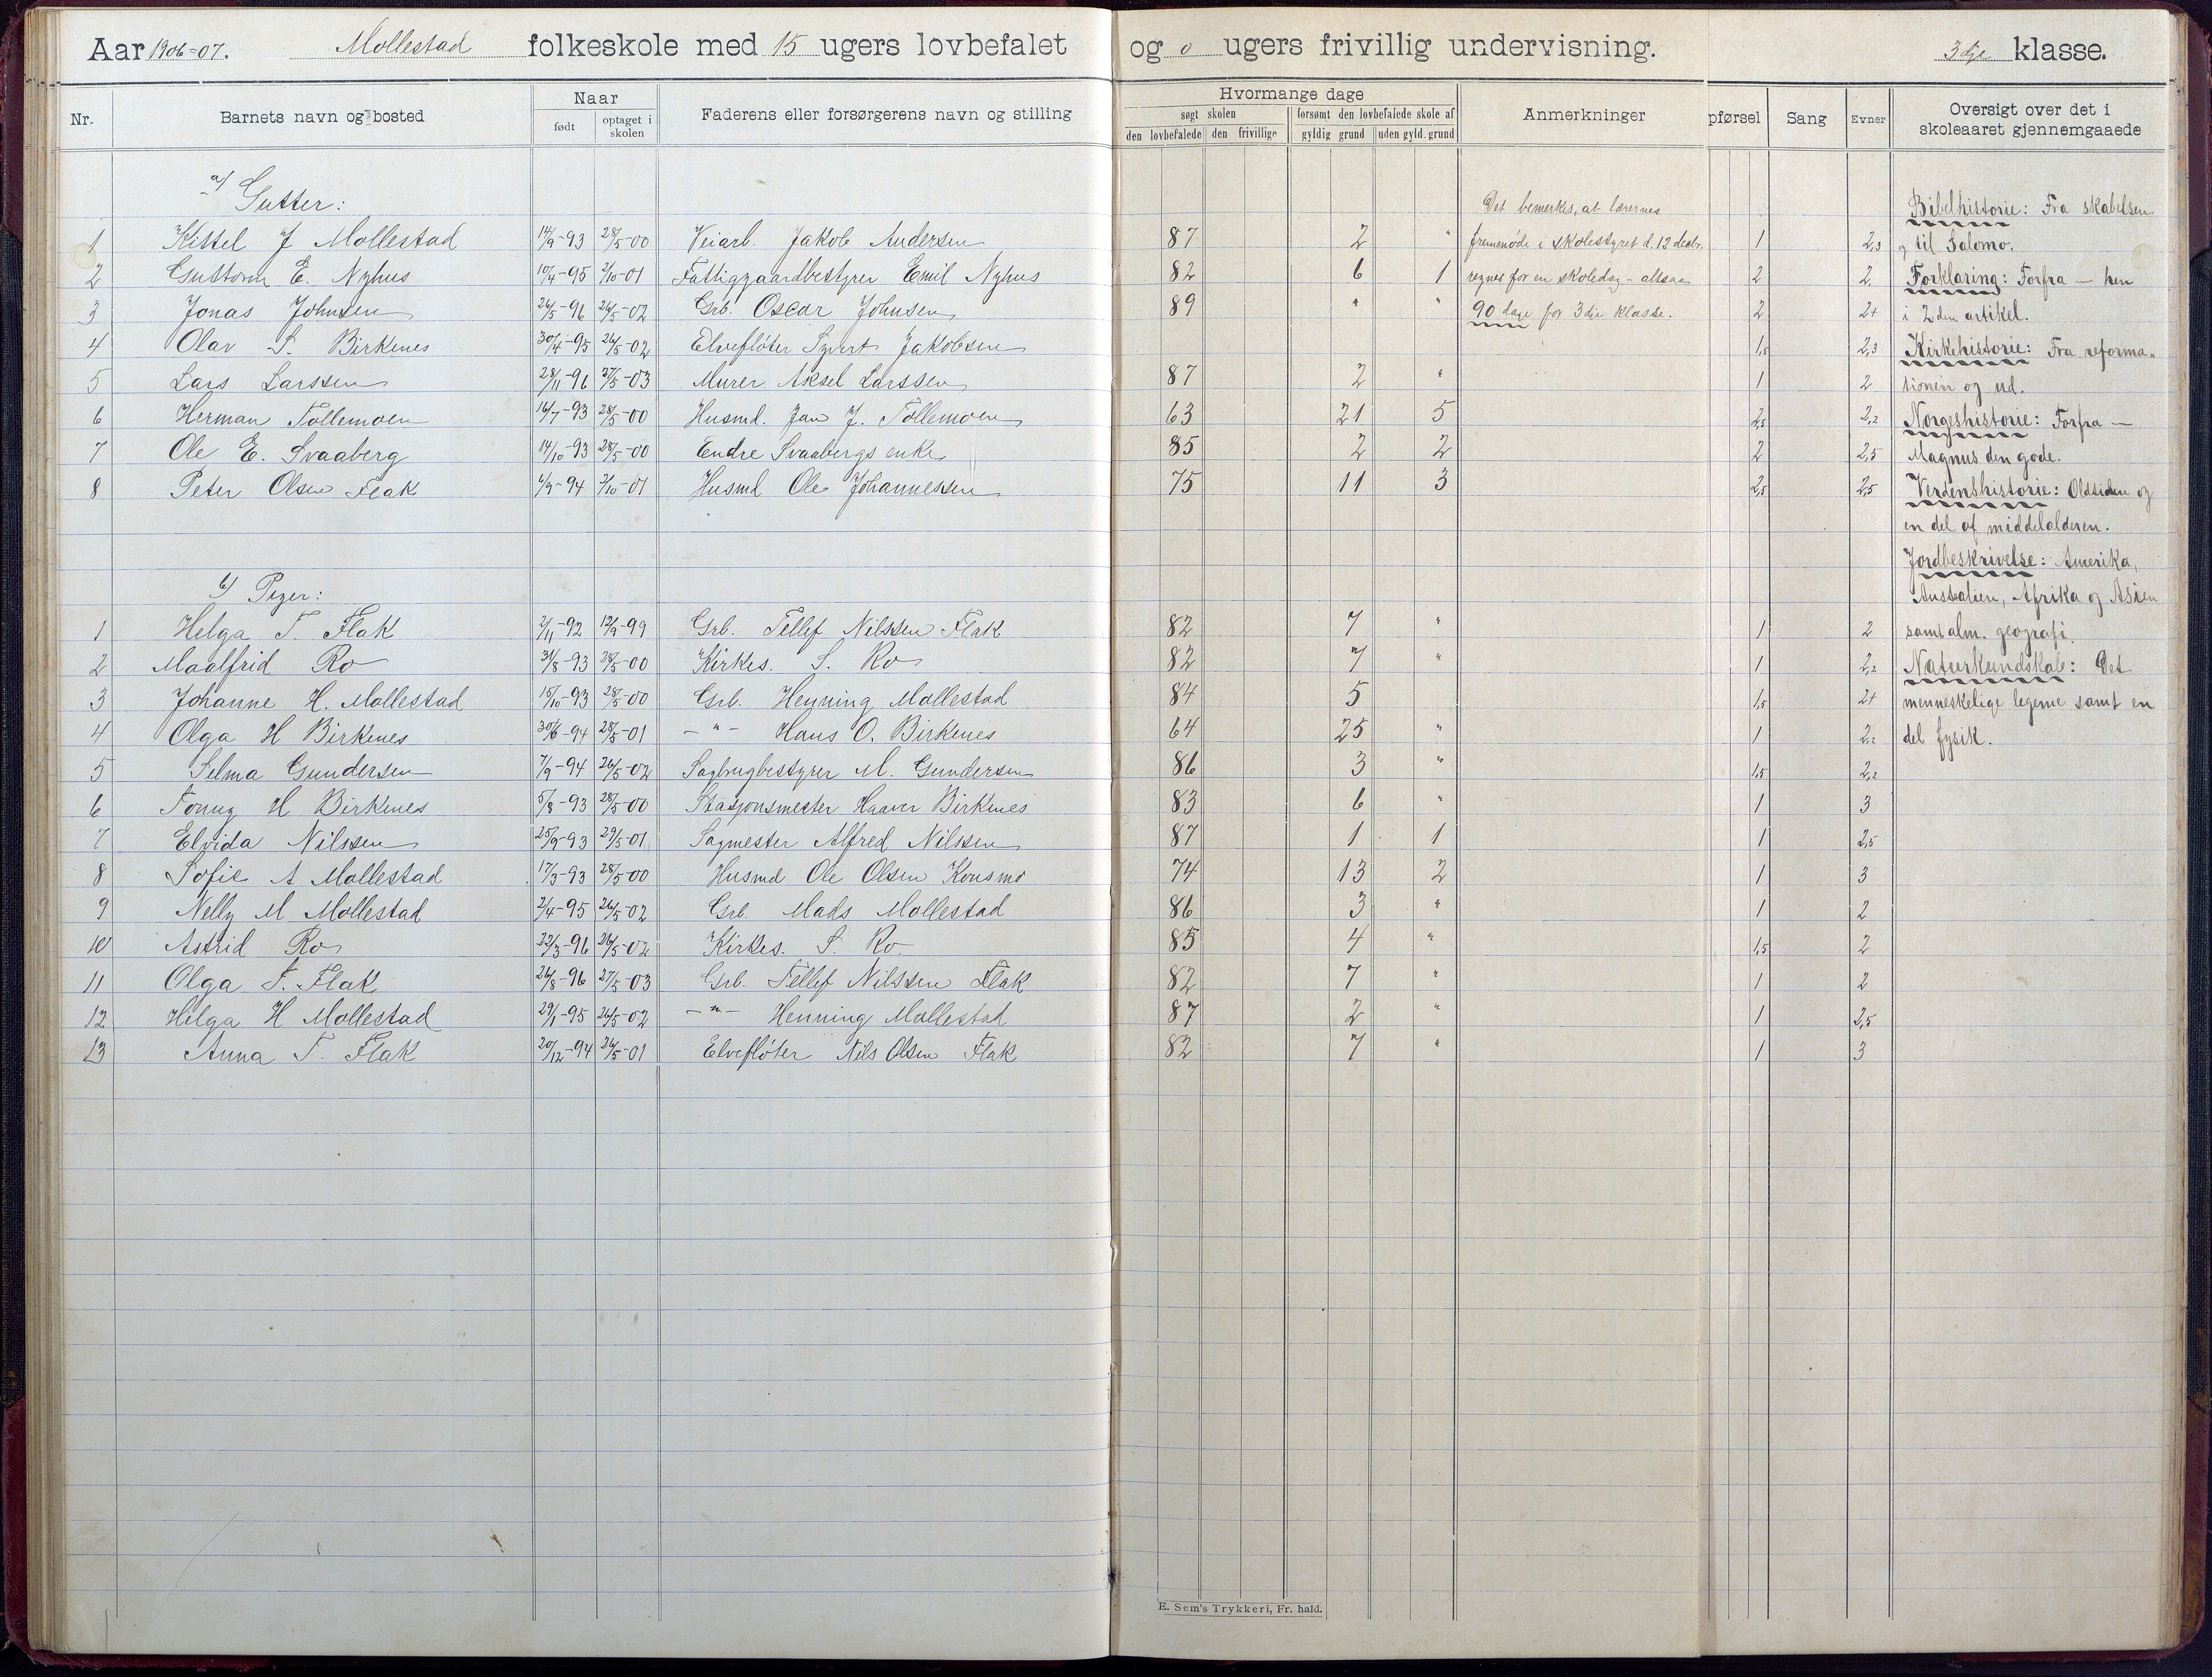 Aar 1906-07. Mollestad folkeskole med 15 ugers lovbefalet og 0 ugers frivillig undervisning. 3dje klasse.
Nr. Barnets navn og bosted Naar født optaget i skolen Faderens eller forsørgerens navn og stilling Hvormange dage søgt skolen den lovbefalede den frivillige forsømt den lovbefalede skole af gyldig grund uden gyld. grund Anmerkninger pførsel Sang Evner Oversigt over det i skoleaaret gjennemgaaede
a/ Gutter: Det bemerkes, at lærernes Bibelhistorie: Fra skabelsen
1 Kittel J Mollestad 14/9-93 28/5-00 Veiarb. Jakob Andersen 87 2 " fremmøde i skolestyret d. 12 decbr. 1 2,3 og til Salomo.
2 Guttorm E. Nyhus 10/4-95 2/10-01 Fattiggaardbestyrer Emil Nyhus 82 6 1 regnes for en skoledag - altsaa 2 2. Forklaring: Forfra - hen
3 Jonas Johnsen 26/5-96 26/5-02 Grb. Oscar Johnsen 89 " " 90 dage for 3die klasse. 2 2+ i 2den artikel.
4 Olav S. Birkenes 30/4-95 26/5-02 Elvefløter Syvert Jakobsen 1,5 2,3 Kirkehistorie: Fra reforma-
5 Lars Larssen 28/11-96 27/5-03 Murer Aksel Larssen 87 2 " 1 2 tionen og ud.
6 Herman Tollemoen 16/7-93 28/5-00 Husmd. Jan J. Tollemoen 63 21 5 2,5 2,2 Norgeshistorie: Forfra -
7 Ole E. Svaaberg 14/10-93 28/5-00 Endre Svaabergs enke 85 2 2 2 2,5 Magnus den gode.
8 Peter Olsen Flak 4/9-94 2/10-01 Husmd Ole Johannessen 75 11 3 2,5 2,5 Verdenshistorie: Oldtiden og
en del af middelalderen.
Jordbeskrivelse: Amerika,
b/ Piger: Australien, Afrika og Asien
1 Helga T. Flak 2/11-92 12/9-99 Grb. Tellef Nilssen Flak 82 7 " 1 2 samt alm. geografi.
2 Maalfrid Ro 31/8-93 28/5-00 Kirkes. S. Ro 82 7 " 1 2,2 Naturkundskab: Det
3 Johanne H. Mollestad 15/10-93 28/5-00 Grb. Henning Mollestad 84 5 1,5 2+ menneskelige legeme samt en
4 Olga H Birkenes 30/6-94 28/5-01 - " - Hans O. Birkenes 64 25 " 1 2,2 del fysik.
5 Selma Gundersen 7/9-94 26/5-02 Sagbrugbestyrer M. Gundersen 86 3 " 1,5 2,2
6 Tonny H Birkenes 5/8-93 28/5-00 Stasjonsmester Haaver Birkenes 83 6 " 1 3
7 Elvida Nilssen 25/9-93 29/5-01 Sagmester Alfred Nilssen 87 1 1 1 2,5
8 Sofie A Mollestad 17/3-93 28/5-00 Husmd Ole Olsen Konsmo 74 13 2 1 3
9 Nelly M Mollestad 2/4-95 26/5-02 Grb. Mads Mollestad 86 3 " 1 2
10 Astrid Ro 22/3-96 26/5-02 Kirkes. S. Ro. 85 4 " 1,5 2
11 Olga T. Flak 26/8-96 27/5-03 Grb. Tellef Nilssen Flak 82 7 " 1 2
12 Helga H Mollestad 29/1-95 26/5-02 - " - Henning Mollestad 87 2 " 1 2,5
13 Anna T. Flak 20/12-94 26/5-01 Elvefløter Nils Olsen Flak 82 7 " 1 3
E. Sem's Trykkeri, Fr. hald.